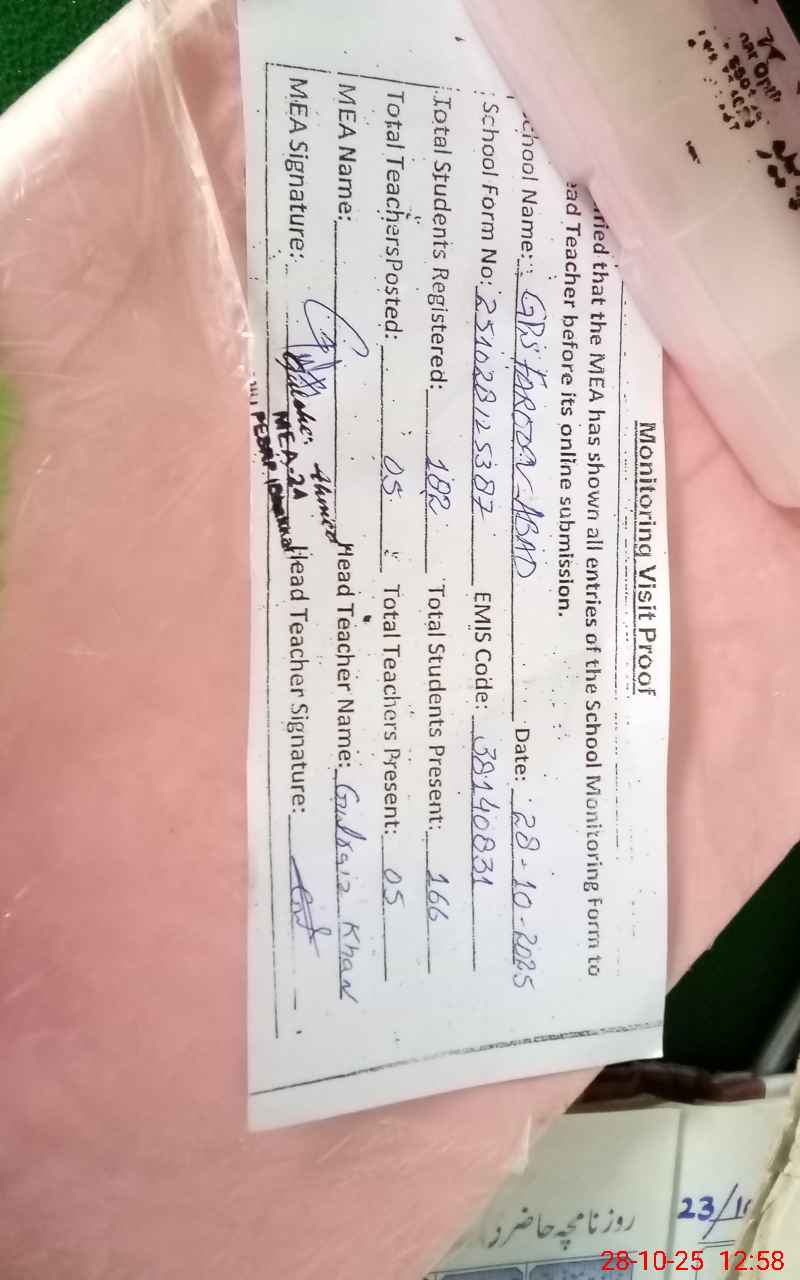 Monitoring Visit Proof
ified that the MEA has shown all entries of the School Monitoring Form to
ead Teacher before its online submission.
chool Name: GPS FAROOQ ABAD Date: 28-10-2025
School Form No: 251028125387 EMIS Code: 38140831
Total Students Registered: 182 Total Students Present: 166
Total Teachers Posted: 05 Total Teachers Present: 05
MEA Name: Head Teacher Name: Gulraiz Khan
MEA Signature: Head Teacher Signature:
Ahmed
MEA-2A
روزنامچہ حاضر
23/1
28-10-25 12:58